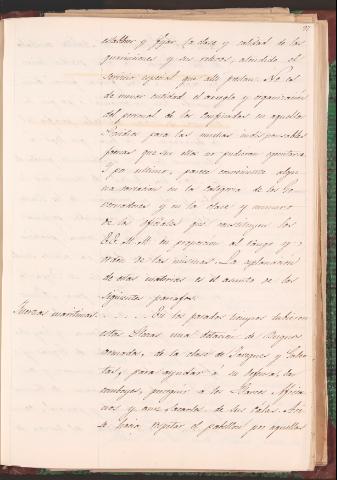 establecer y fijar la clase y calidad de las
guarniciones y sus relevos, atendido el
servicio especial que alli prestan. No es
de menor entidad el arreglo y organizacion
del personal de los confinados en aquellos
Presidios para las muchas indispensables
faenas que sin ellos no pudieran egecutarse
Y por ultimo, parece conveniente algu-
na variacion en la categoria de los Go-
bernadores y en la clase y numero
de los oficiales que constituyen los
E.E. M.M. en proporcion al rango y
orden de los mismos. La esplanacion
de estas materias es el asunto de los
siguientes parrafos.
Fuerzas maritimas. En los pasados tiempos tubieron
estas Plazas una dotacion de Buques
armados, de la clase de Jaeques y Galeo-
tas, para ayudar a su defensa, los
comboyes, perseguir a los Moros Africa-
nos y aun sacarlos de sus calas. An-
te hacia respetar el pabellon por aquellas